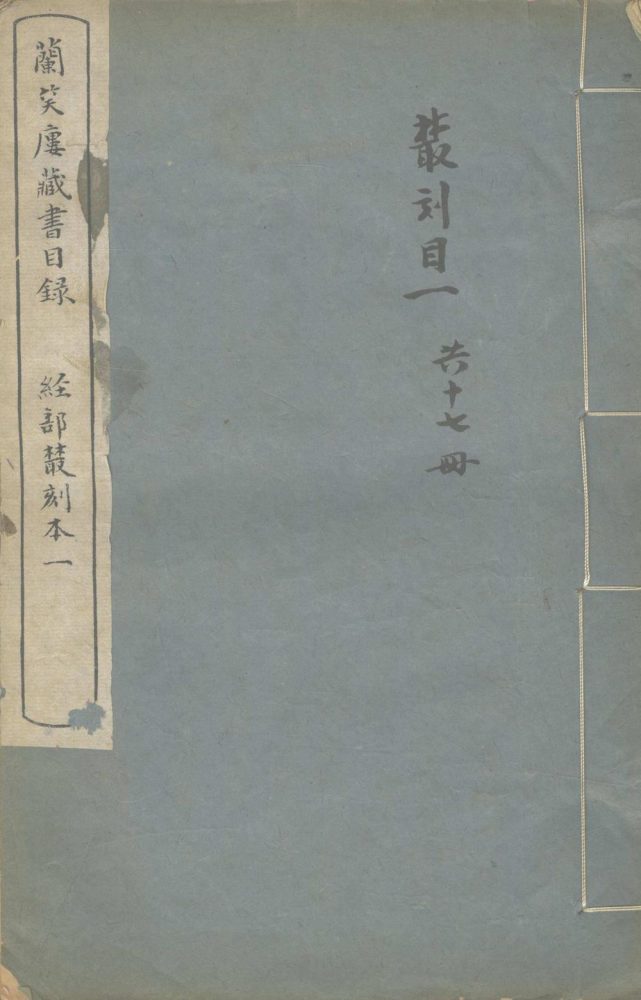 叢刻目一 共十七冊
蘭笑廔藏書目録 経部叢刻本一